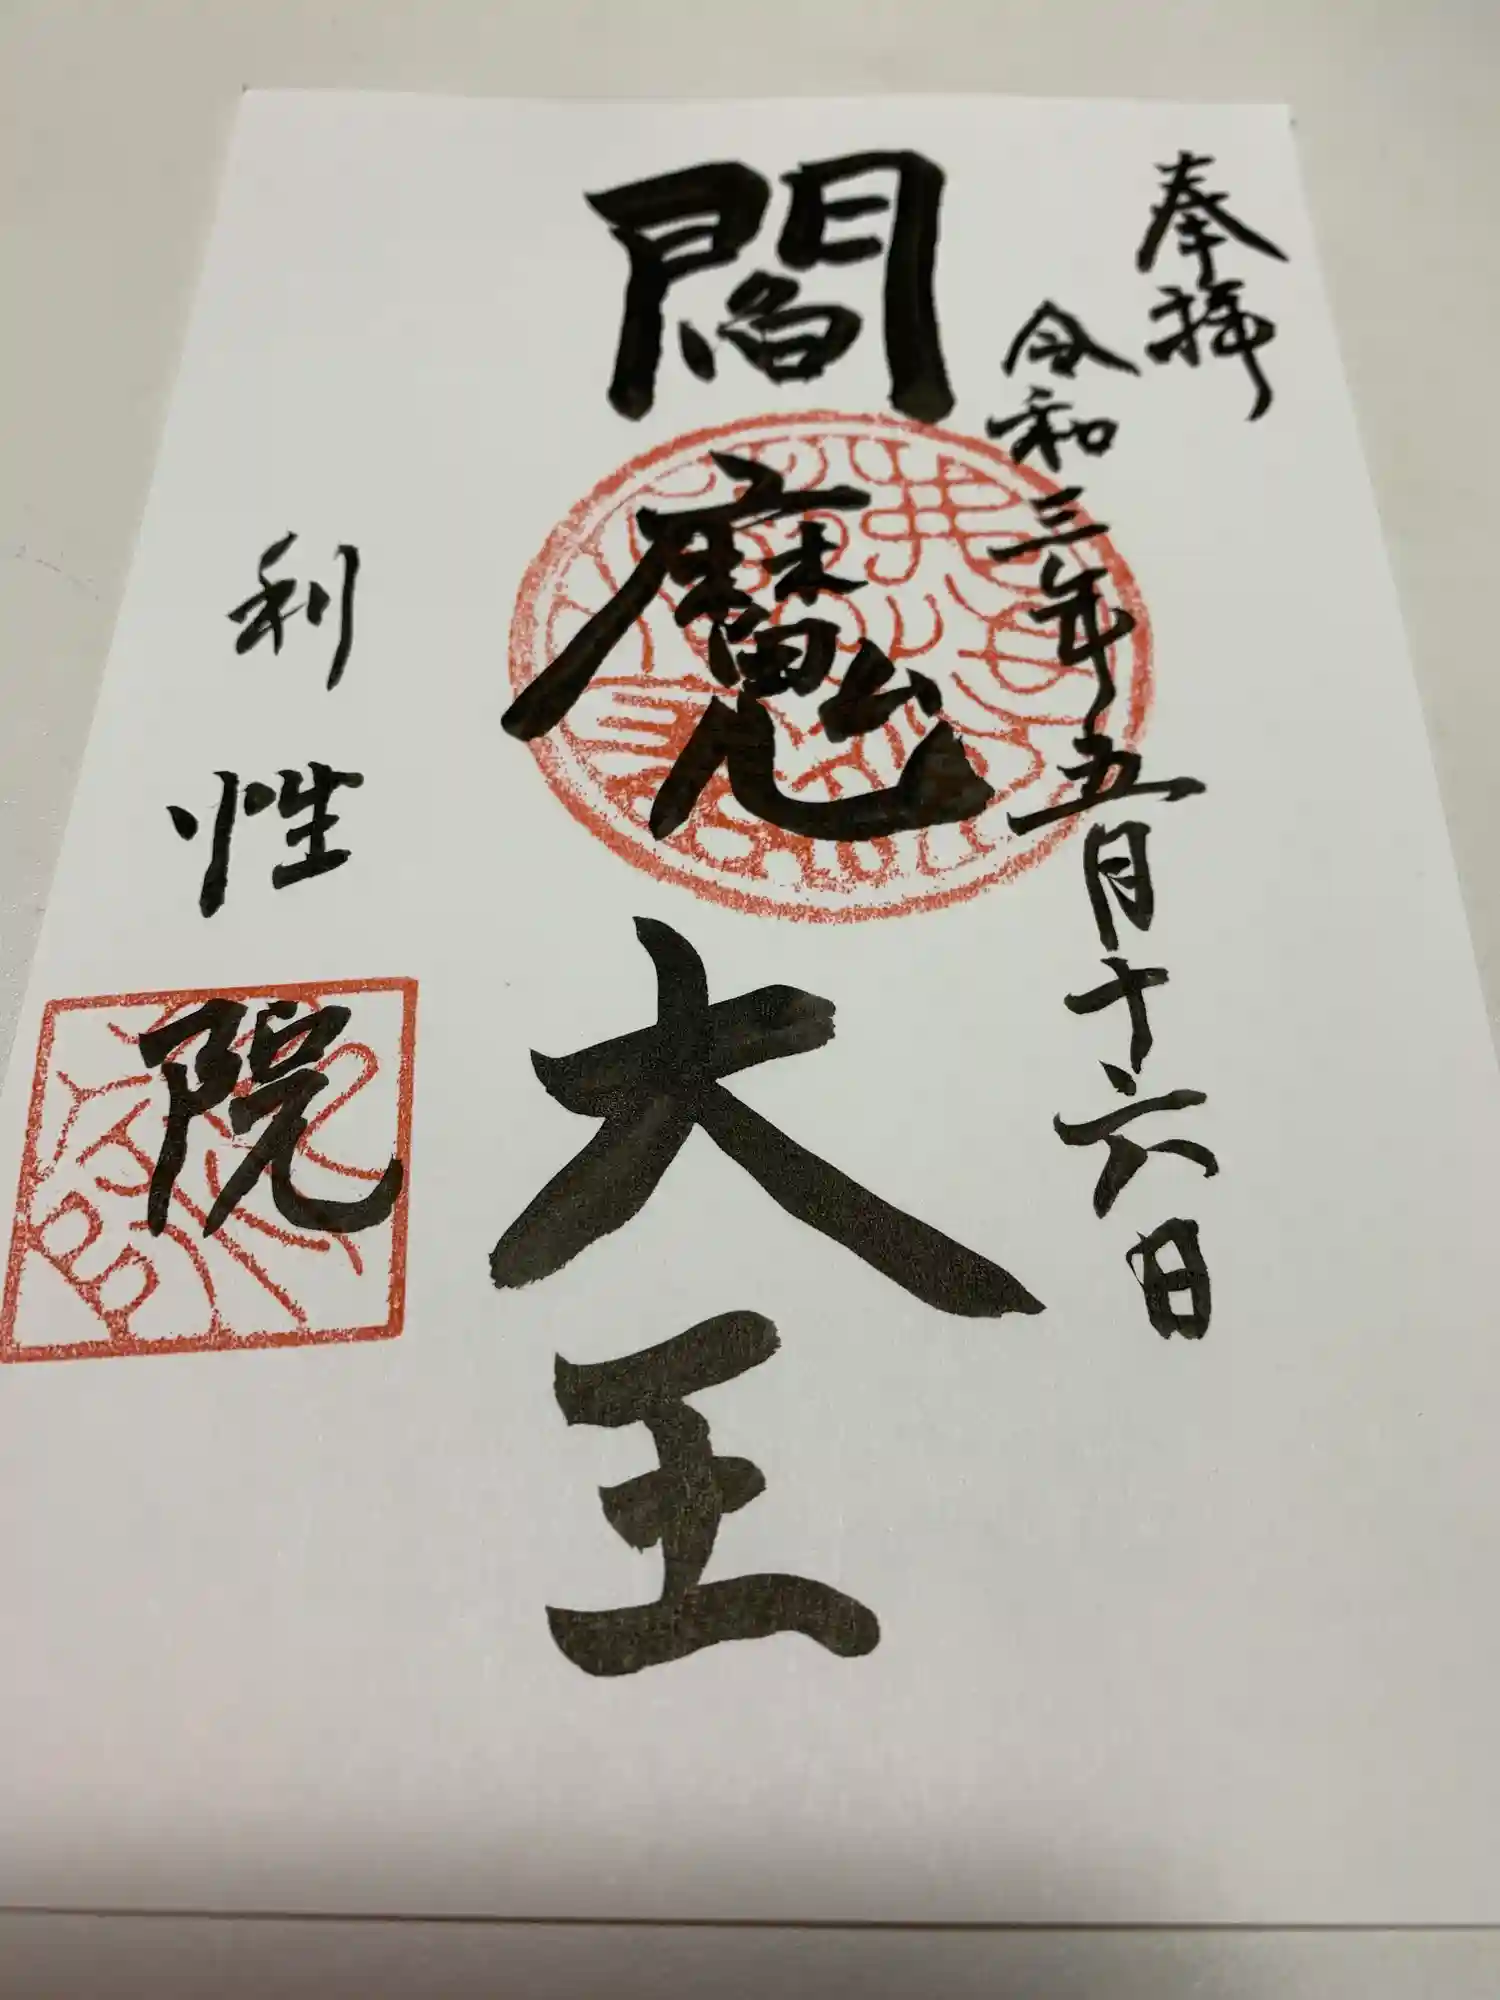 奉拝
令和三年五月十六日
閻魔大王
利性院